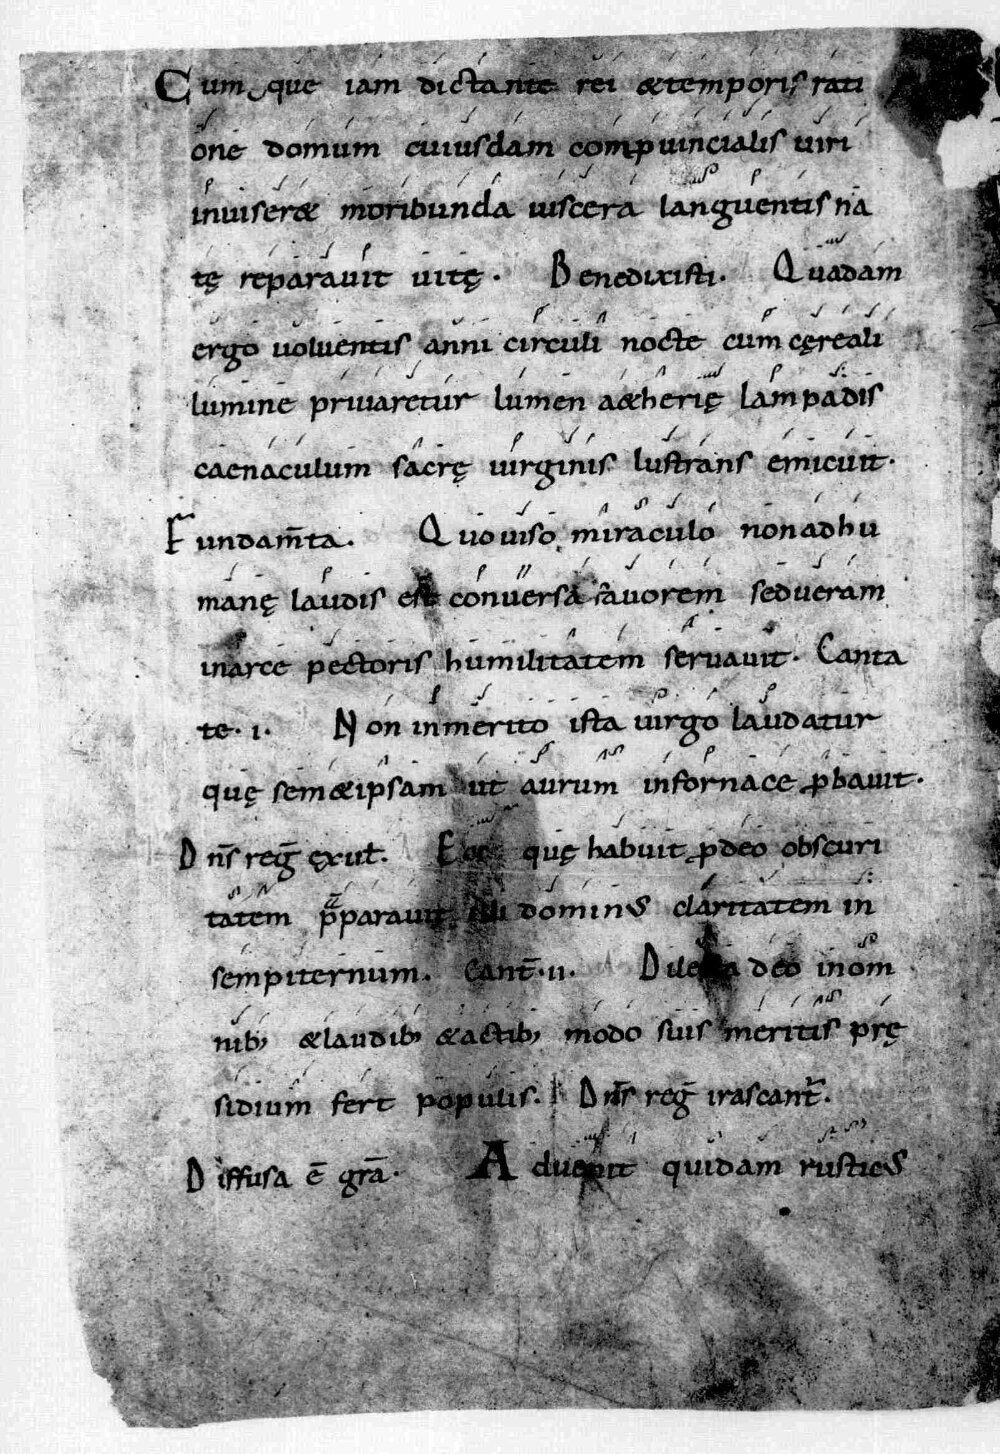 Cumque iam dictante rei &temporis rati
one domum cuiusdam compuincialis uiri
inuiser& moribunda uiscera languentis na
tę reparauit uitę. Benedixisti. Quadam
ergo uoluentis anni circuli nocte cum cęreali
lumine priuaretur lumen a&herię lampadis
caenaculum sacrę uirginis lustrans emicuit.
Fundam̄ta. Quo uiso miraculo non adhu
manę laudis est conuersa fauorem sed ueram
in arce pectoris humilitatem seruauit. Canta
te. i. Non inmerito ista uirgo laudatur
quę sem&ipsam ut aurum in fornace ꝓbauit.
Dn̄s reḡ exult̄. quę habuit ꝓdeo obscuri
tatem p̄parauit illi dominus claritatem in
sempiternum. Cant̄. ii. Dilecta deo in om
nib; &laudib; &actib; modo suis meritis prę
sidium fert populis. Dn̄s reḡ irascant̄.
Diffusa ē gr̄a. Aduenit quidam rusticus